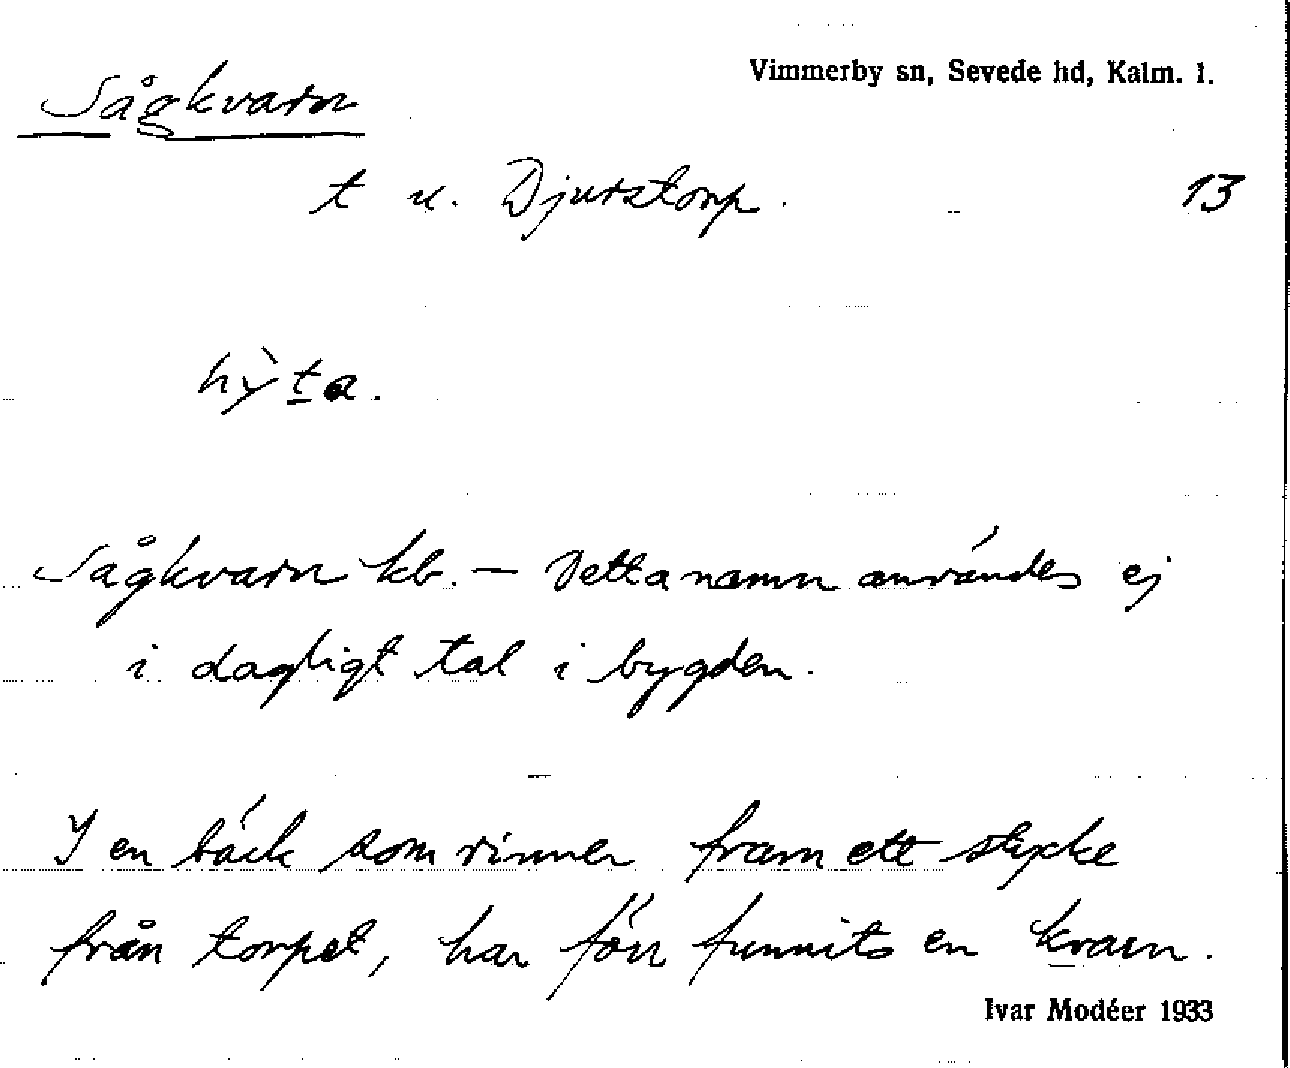 Vimmerby sn, Sevede hd, Kalm. l.
Sågkvarn
t u. Djurstorp. 13
hy̆̀ta.
Sågkvarn kb. — Detta namn användes ej
i dagligt tal i bygden.
I en bäck som rinner fram ett stycke
från torpet, har förr funnits en kvarn.
Ivar Modéer 1933